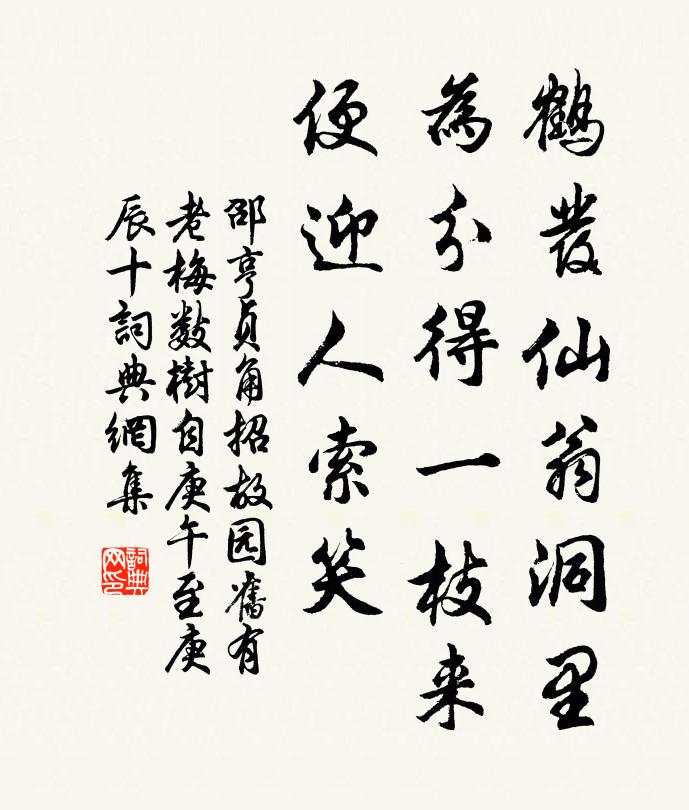 鶴發仙翁洞里
為分得一枝来
便迎人索笑
邵亨贞角招故园舊有
老梅數樹自庚午至庚
辰十詞典網集
詞典
网印